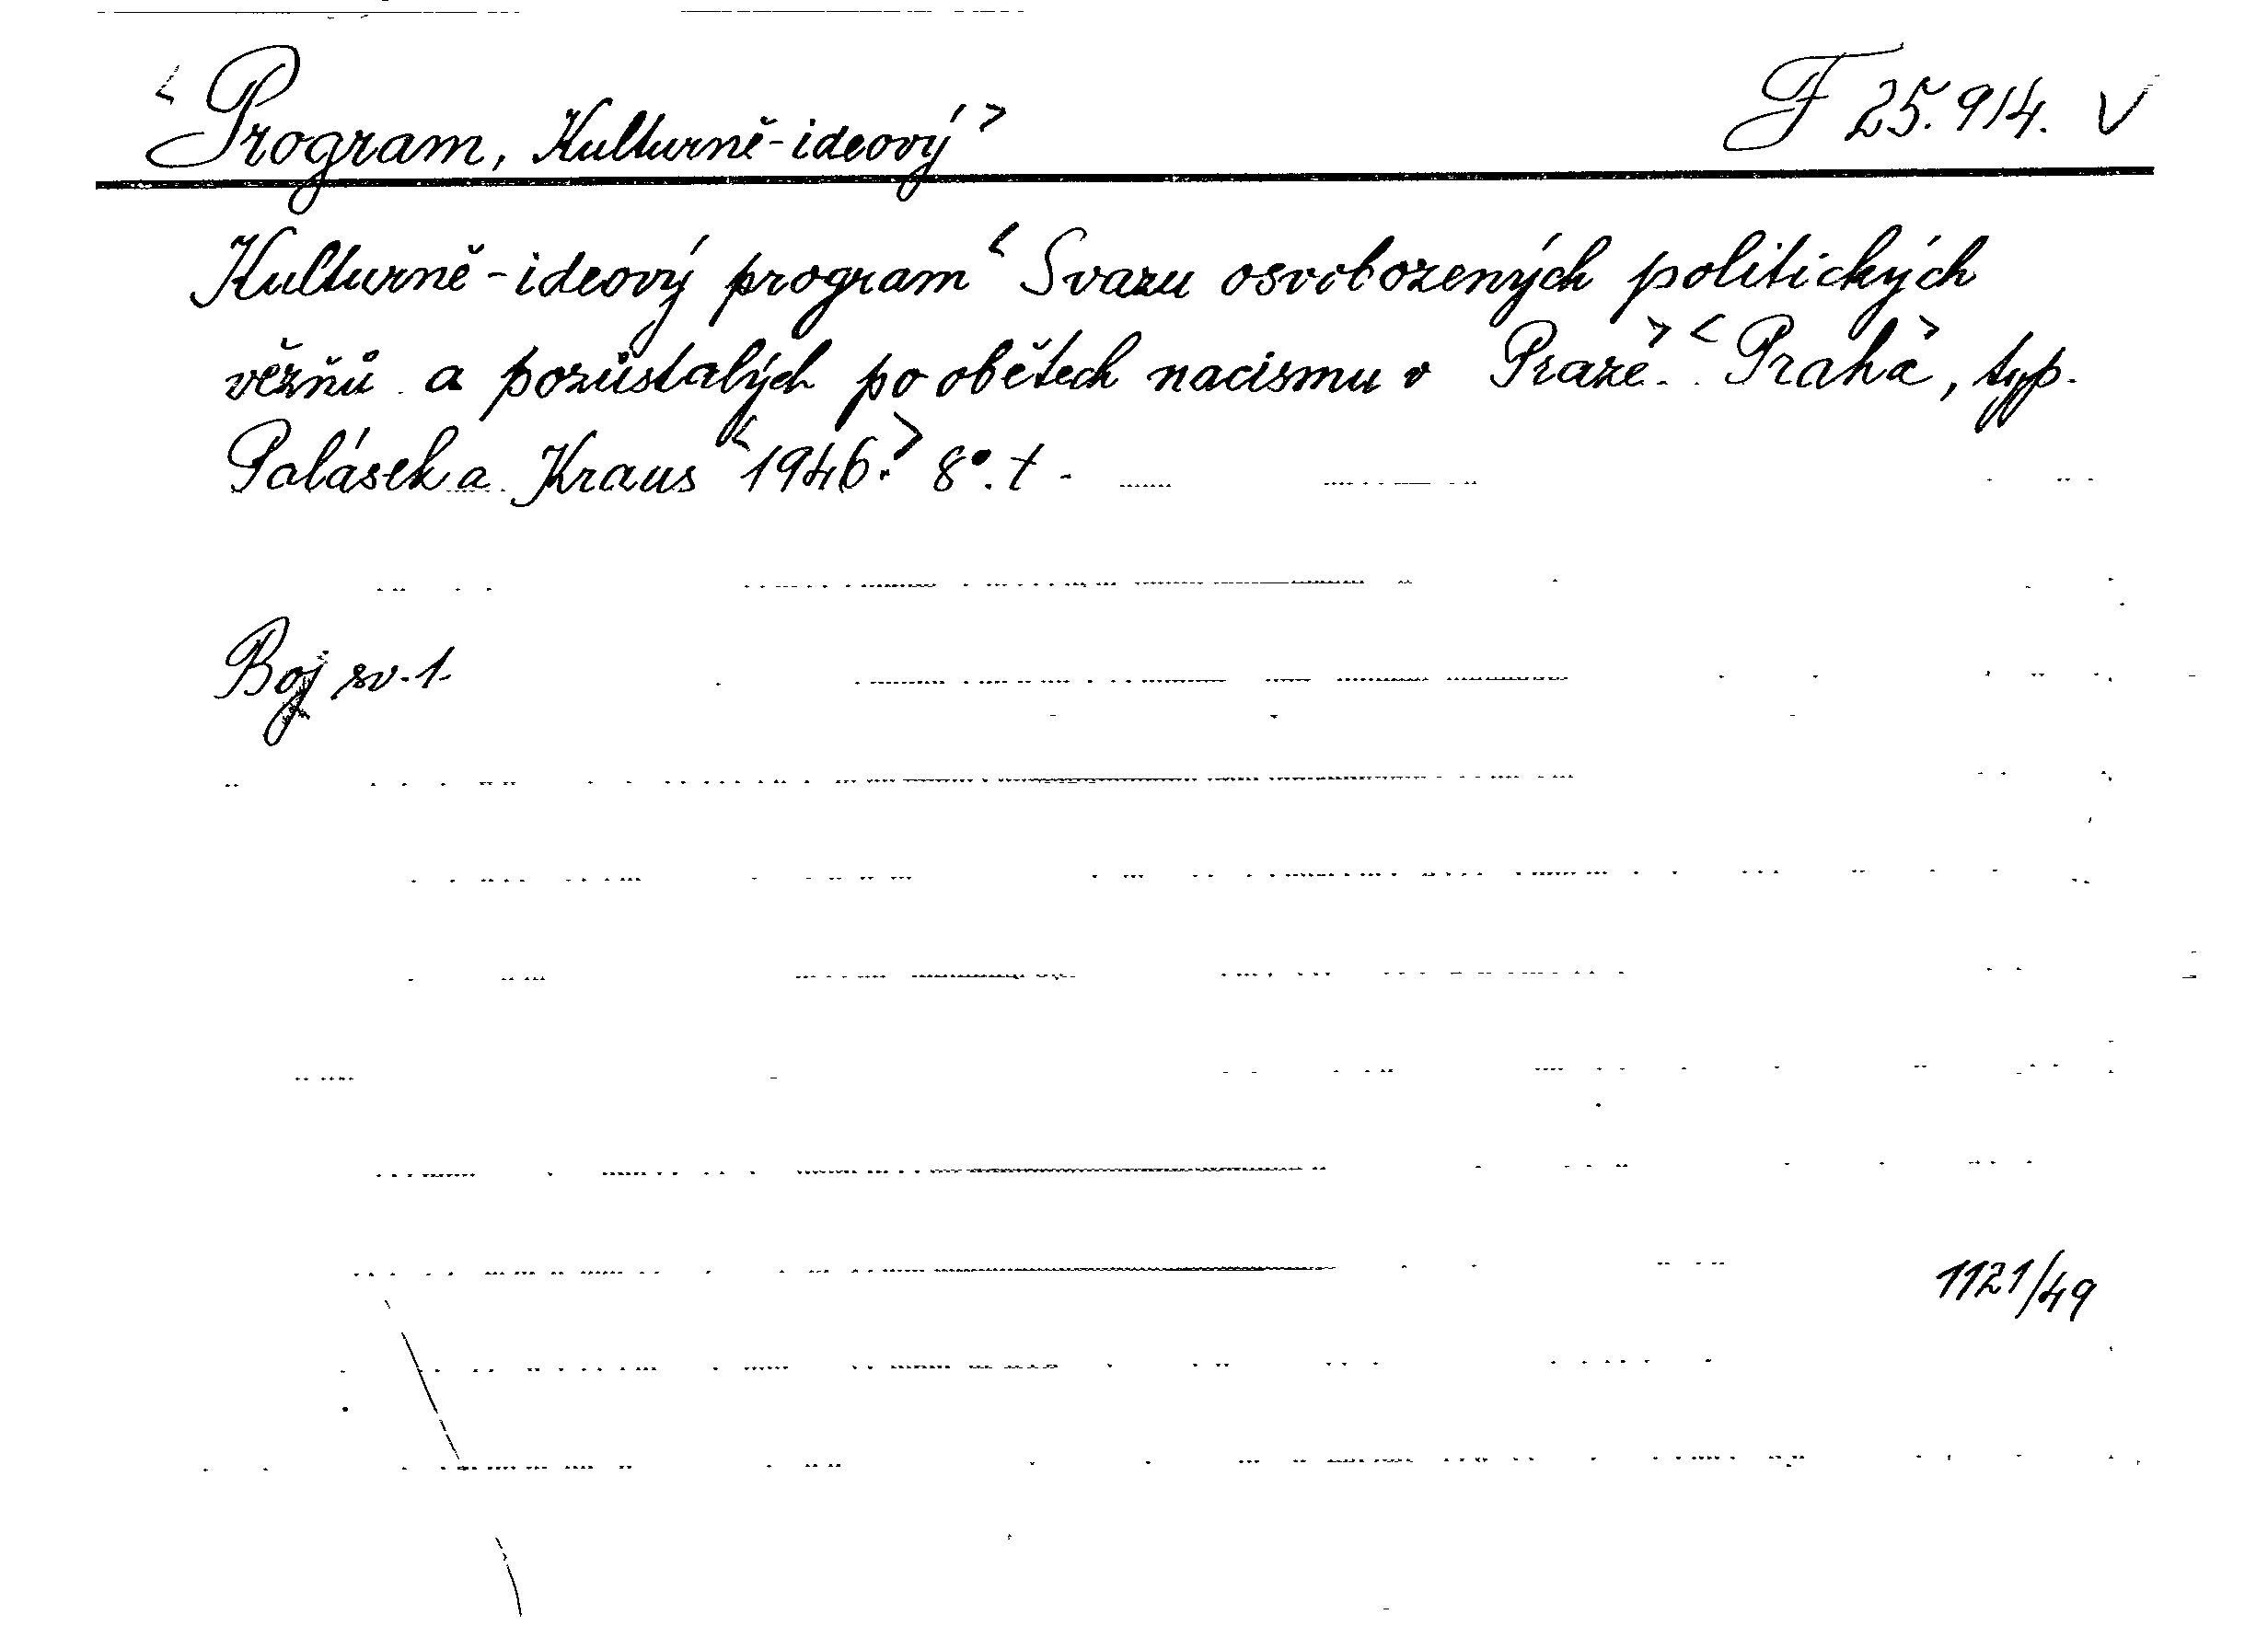 <Program, Kulturně-ideový> F 25.914. V
Kulturně-ideový program <Svazu osvobozených politických
vězňů a pozůstalých po obětech nacismu v Praze.> <Praha>, typ.
Palásek a Kraus <1946.> 8°. t.
Boj sv. 1.
1121/49